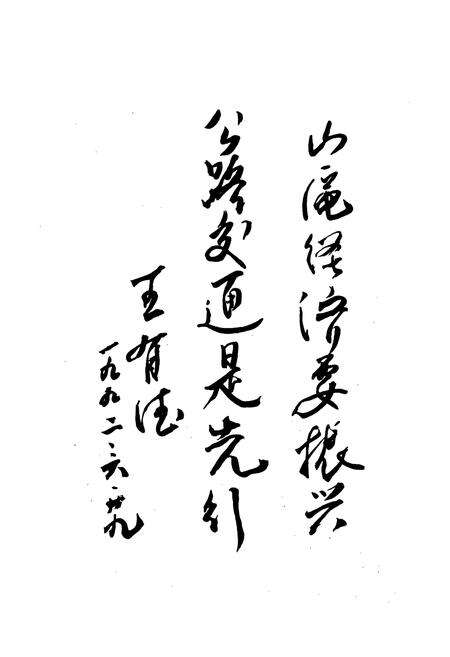 山经济要振兴
公路交通是先行
王有德
一九九二、六、廿九